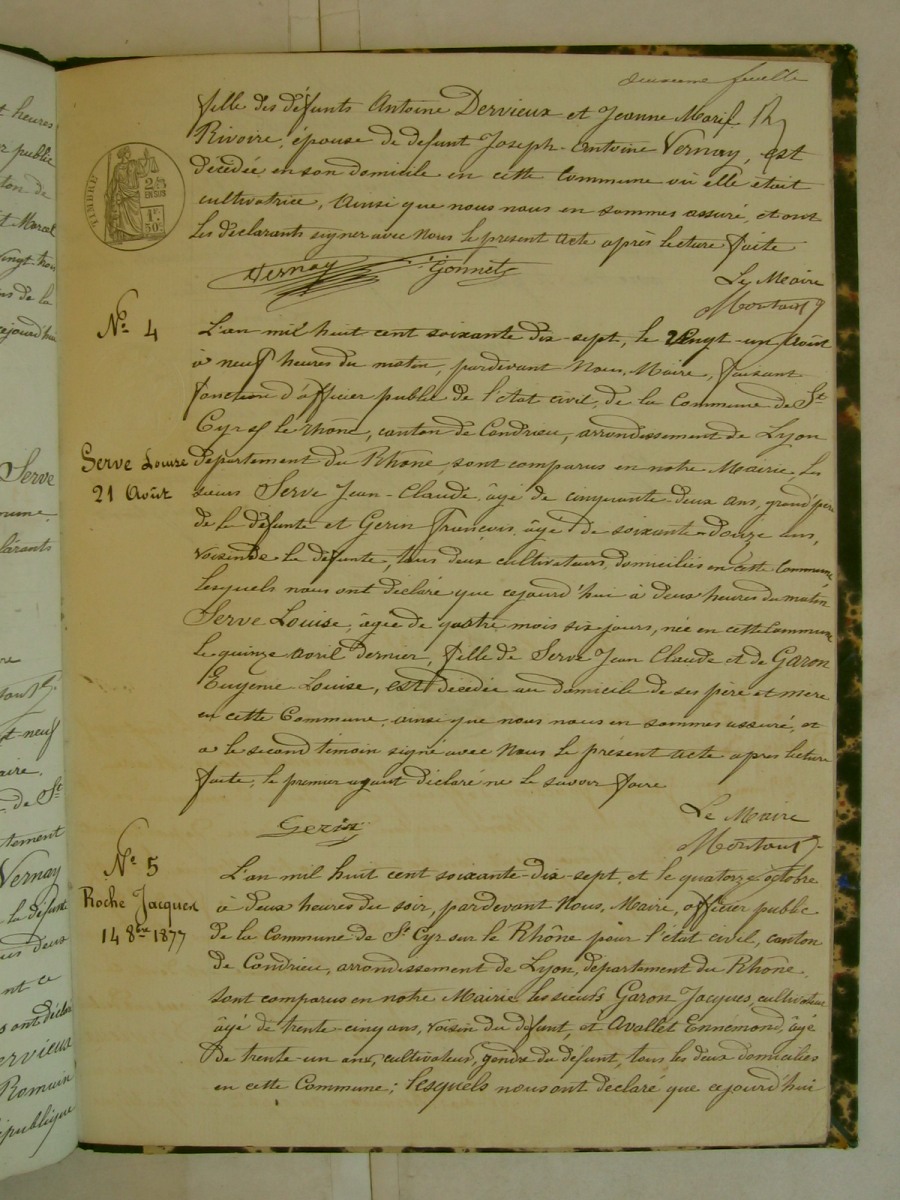 feuille
fille des défunts Antoine Dervieux et Jeanne Marie
Rivoire, épouse de défunt Joseph-Antoine Vernay, est
décédée en son domicile en cette Commune où elle était
cultivatrice, Ainsi que nous nous en sommes assuré, et ont
les déclarants signer avec Nous le présent Acte après lecture faite
TIMBRE
EN SUS
1F.
50c
Vernay Gonnet
Le Maire
No 4
L'an mil huit cent soixante dix-sept, le Vingt-un Août
à neuf heures du matin, pardevant Nous, Maire, faisant
fonction d'officier public de l'état civil, de la Commune de St
Cyr s/ le Rhône, canton de Condrieu, arrondissement de Lyon
Serve Louise
21 Août
département du Rhône, sont comparus en notre Mairie, les
sieurs Serve Jean-Claude, âgé de cinquante-deux ans, grand'père
de la défunte et Gerin François, âgé de soixante-douze ans,
voisin de la défunte, tous deux cultivateurs, domiciliés en cette Commune
Lesquels nous ont déclaré que cejourd'hui à deux heures du matin
Serve Louise, âgée de quatre mois six jours, née en cette Commune
le quinze avril dernier, fille de Serve Jean Claude et de Garon
Eugenie Louise, est décédée au domicile de ses père et mère
en cette Commune, ainsi que nous nous en sommes assuré, et
a le second témoin signé avec Nous le présent acte après lecture
faite, le premier ayant déclaré ne le savoir faire
Gerin
Le Maire
No 5
Roche Jacques
14 8bre 1877
L'an mil huit cent soixante-dix-sept, et le quatorze octobre
à deux heures du soir, pardevant Nous, Maire, officier public
de la Commune de St Cyr sur le Rhône pour l'état civil, canton
de Condrieu, arrondissement de Lyon, département du Rhône,
sont comparus en notre Mairie les sieurs Garon Jacques, cultivateur
âgé de trente-cinq ans, voisin du défunt, et Avallet Ennemond, âgé
de trente-un ans, cultivateur, gendre du défunt, tous les deux domiciliés
en cette Commune; lesquels nous ont déclaré que cejourd'hui